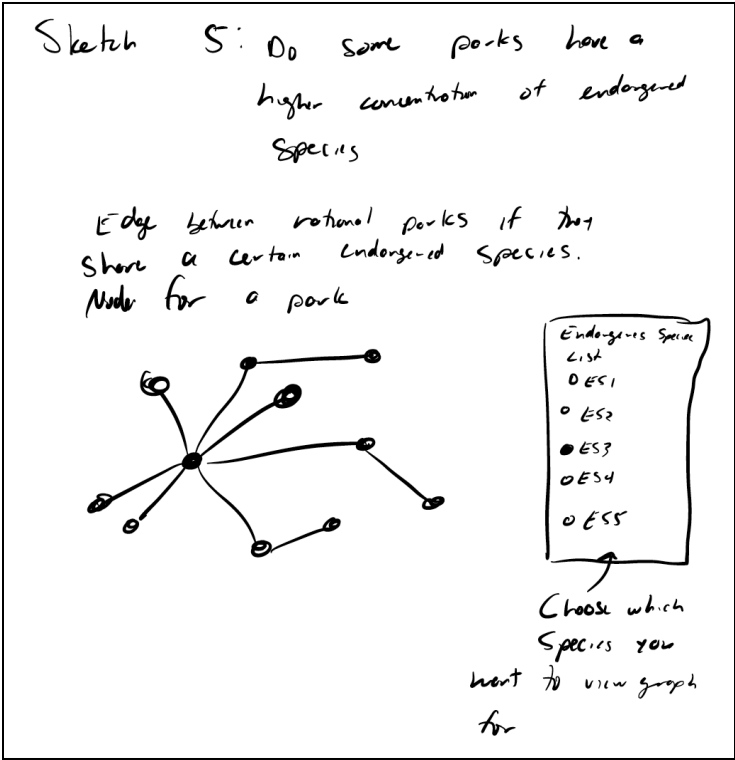 Sketch 5: Do some parks have a
higher concentration of endangered
Species
Edge between national parks if they
share a certain Endangered Species.
Node for a park
Endangeres Species
List
ES1
ES2
ES3
ES4
ES5
Choose which
Species you
want to view graph
for